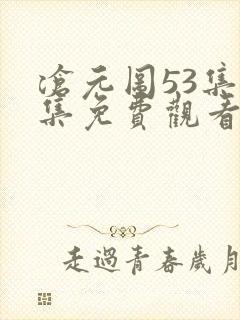 滄元圖53集
集免費觀看
走過青春歲月